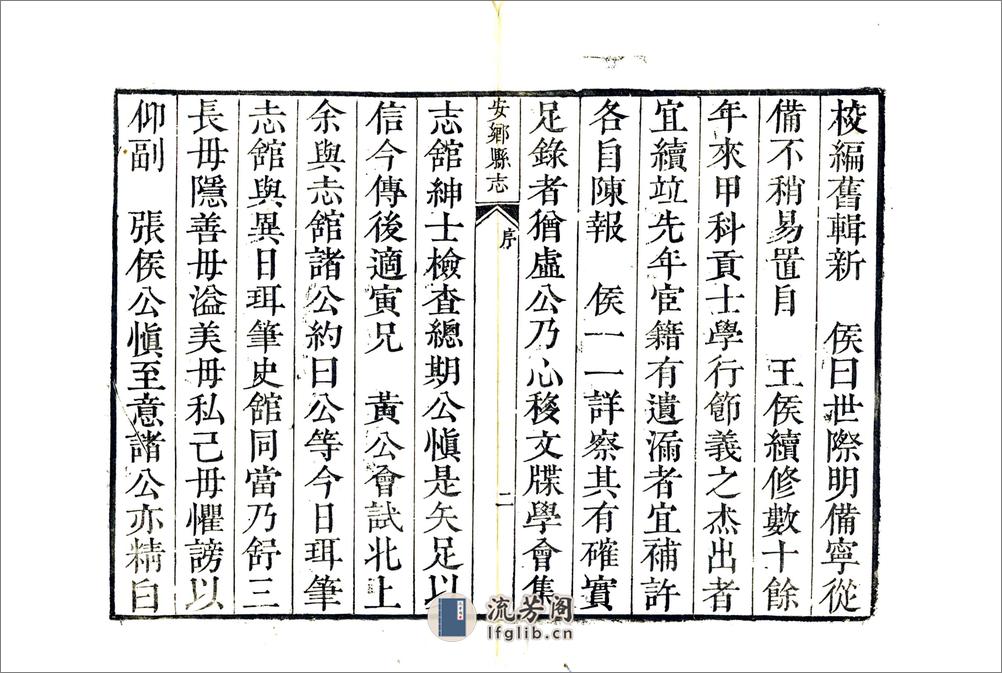 校編舊輯新　侯曰世際明備寧從
備不稍易置自　王侯續修數十餘
年來甲科貢士學行節義之杰出者
宜續竝先年宦籍有遺漏者宜補許
各自陳報　侯一一詳察其有確實
足錄者猶虛公乃心移文牒學會集
安鄉縣志
序
二
志舘紳士檢查總期公愼是矢足以
信今傳後適寅兄　黃公會試北上
余與志舘諸公約曰公等今日珥筆
志舘與異日珥筆史舘同當乃舒三
長毋隱善毋溢美毋私己毋懼謗以
仰副　張侯公愼至意諸公亦精白
流芳阁
lfglib.cn